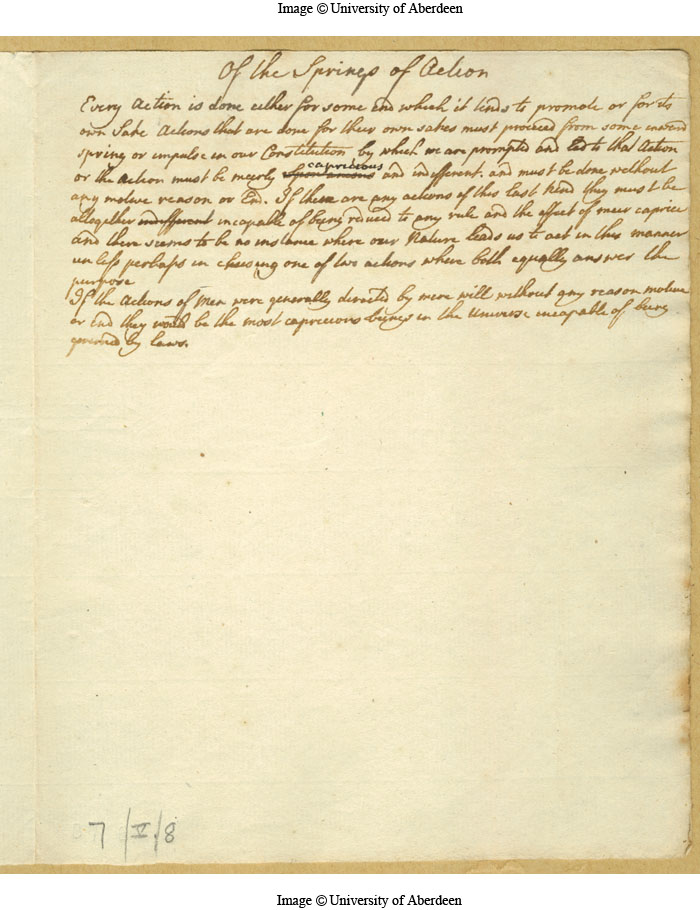 Image © University of Aberdeen
Of the Springs of Action
Every Action is done either for some End which it tends to promote or for its
own Sake Actions that are done for their own sakes must proceed from some inward
spring or impulse in our Constitution by which we are prompted and led to that Action
capricious
or the action must be meerly spontaneous and indifferent. and must be done without
any motive reason or End. If there are any actions of this last kind they must be
altogether indifferent incapable of being reduced to any rule and the effect of meer caprice
and there seems to be no instance where our Nature leads us to act in this manner
unless perhaps in choosing one of two actions where both equally answer the
purpose
If the Actions of Men were generally directed by mere will without any reason motive
or End they would be the most capricious beings in the Universe incapable of being
governed by laws.
7/V/8
Image © University of Aberdeen